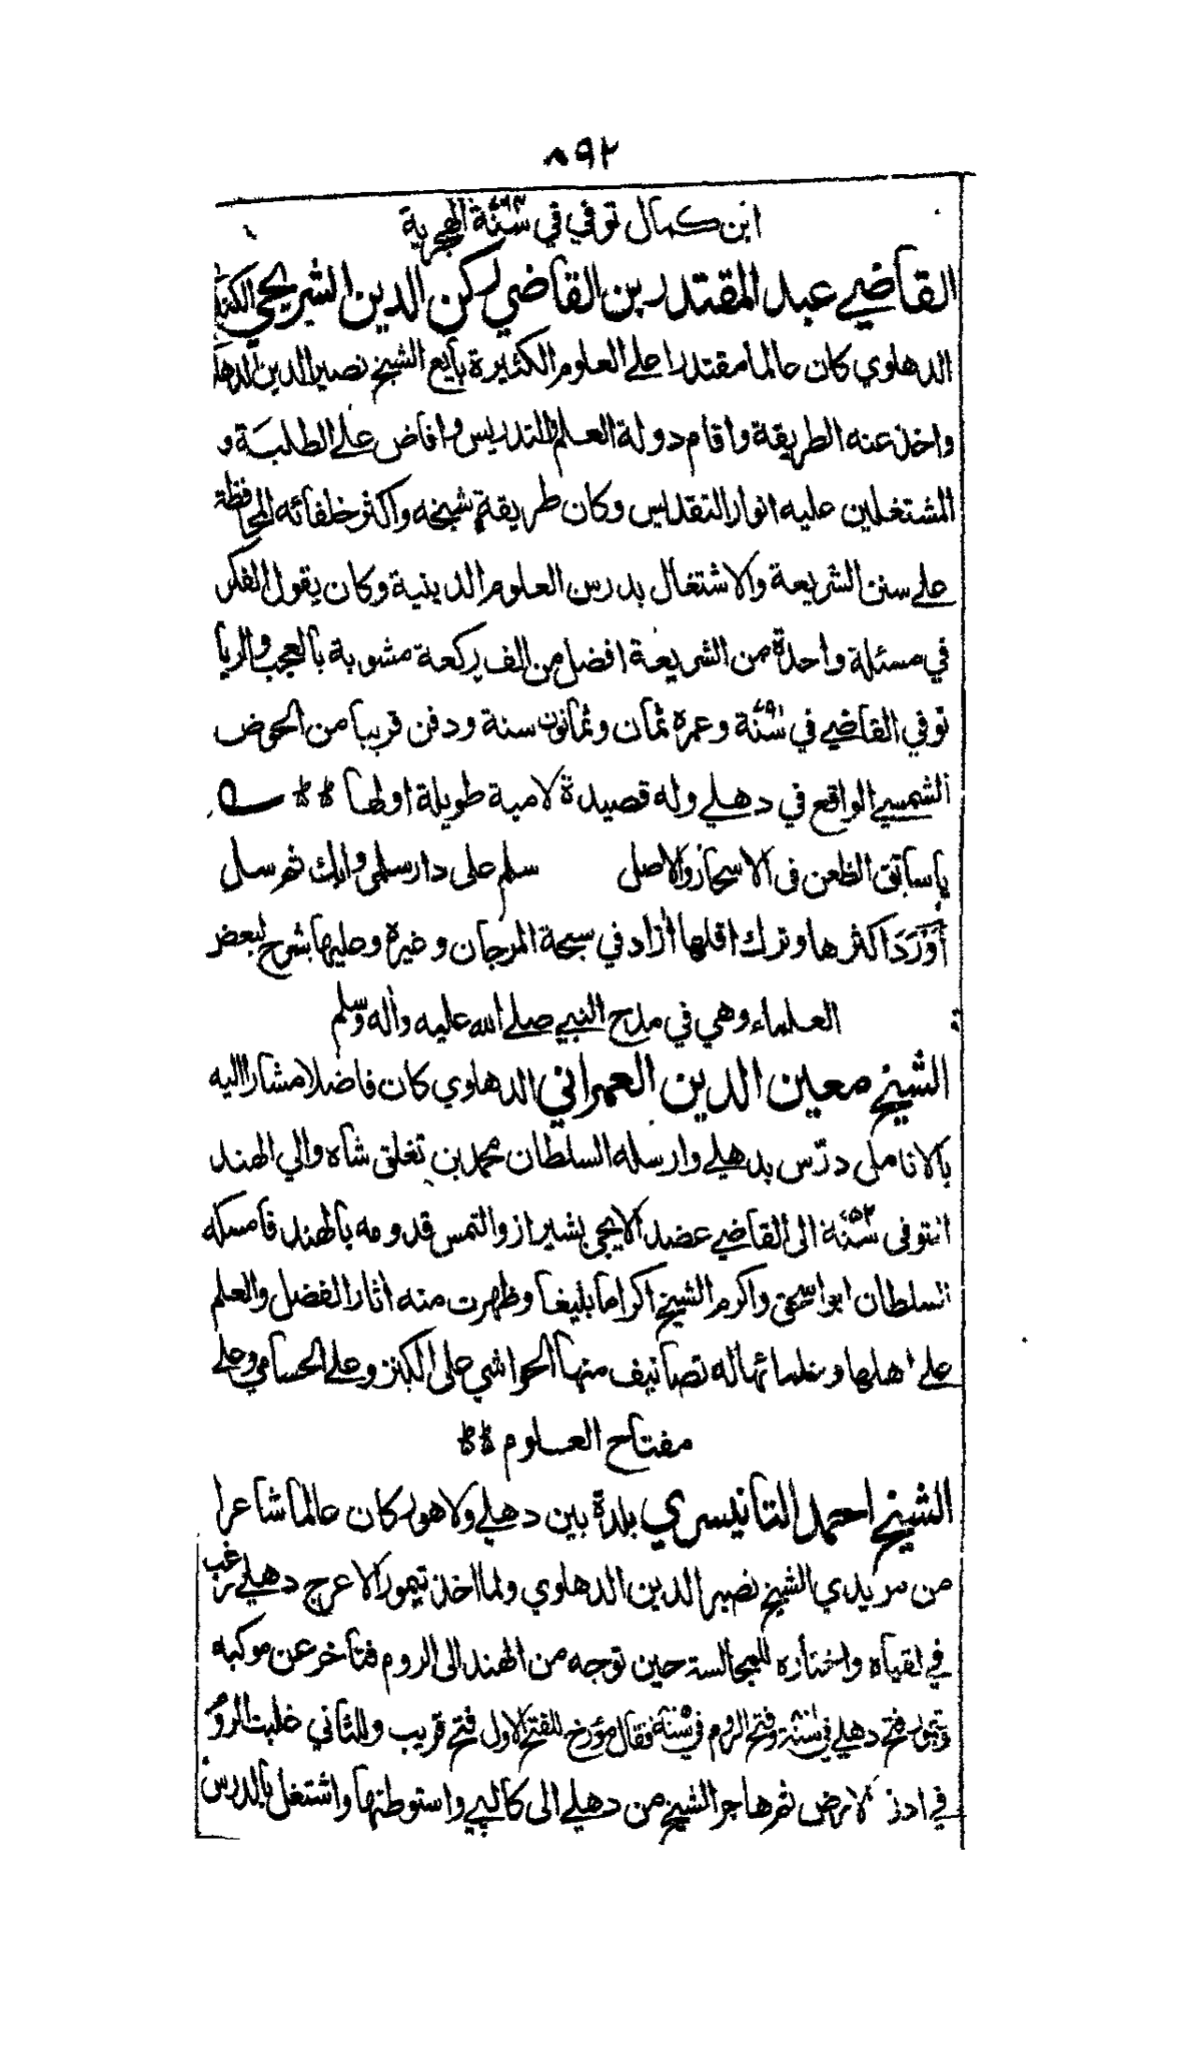 ٨٩٢
ابن كمال توفي في سنة الهجرية
القاضي عبد المقتدر بن القاضي ركن الدين الشريحي الكندي
الدهلوي كان عالما مقتدرا على العلوم الكثيرة بايع الشيخ نصير الدين الدهلوي
واخذ عنه الطريقة واقام دولة العلم بالتدريس وافاض على الطلبة و
المشتغلين عليه انوار التقديس وكان طريقة شيخه واكثر خلفائه المحافظة
على سنن الشريعة والاشتغال بدرس العلوم الدينية وكان يقول الفكر
في مسئلة واحدة من الشريعة افضل من الف ركعة مشوبة بالعجب والريا
توفي القاضي في سنة ٧٩١ وعمره ثمان وثمانون سنة ودفن قريبا من الحوض
الشمسي الواقع في دهلي وله قصيدة لامية طويلة اولها
يا سائق الظعن فى الاسحار والاصل سلم على دار سلمى وابك ثم سل
أَوْرَدَ اكثرها وترك اقلها آزاد في سبحة المرجان وغيره وعليها شرح لبعض
العلماء وهي في مدح النبي صلى الله عليه وآله وسلم
الشيخ معين الدين العمراني الدهلوي كان فاضلا مشارا اليه
بالانامل درّس بدهلي وارسله السلطان محمد بن تغلق شاه والي الهند
المتوفى سنة ٧٥٢ الى القاضي عضد الايجي بشيراز والتمس قدومه بالهند فامسكه
السلطان ابو اسحق واكرم الشيخ اكراما بليغا وظهرت منه آثار الفضل والعلم
على اهلها وعلمائها له تصانيف منها الحواشي على الكنز وعلى الحسامي وعلى
مفتاح العلوم
الشيخ احمد التانيسري بلدة بين دهلي ولاهور كان عالما شاعرا
من مريدي الشيخ نصير الدين الدهلوي ولما اخذ تيمور الاعرج دهلي رغب
في لقياه واختاره للمجالسة حين توجه من الهند الى الروم فتاخر عن موكبه
وتيمور فتح دهلي في سنة وفتح الروم في سنة فقال مؤرخ للفتح الاول فتح قريب وللثاني غلبت الروم
في ادنى الارض ثم هاجر الشيخ من دهلي الى كالپي واستوطنها واشتغل بالدرس